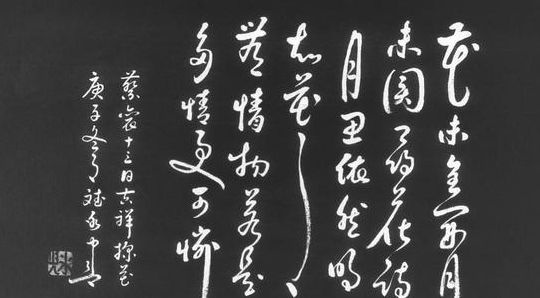 花未全開月
未圓尋花待
月思依然明
知花月
無情物若
多情更可憐
蔡襄十三日吉祥探花
庚子冬月